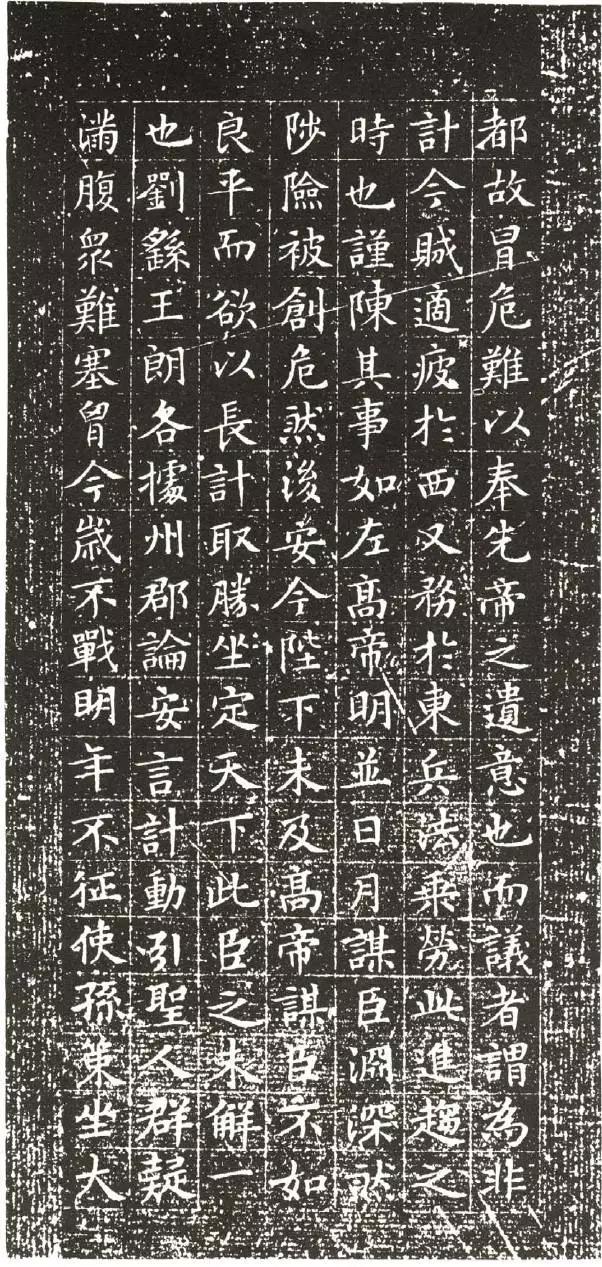 都故冒危難以奉先帝之遺意也而議者謂為非
計今賊適疲於西又務於東兵法乗勞此進趨之
時也謹陳其事如左髙帝明並日月謀臣淵深然
陟險被創危然後安今陛下未及髙帝謀臣不如
良平而欲以長計取勝坐定天下此臣之未解一
也劉繇王朗各據州郡論安言計動引聖人群疑
滿腹眾難塞胷今歲不戰明年不征使孫策坐大